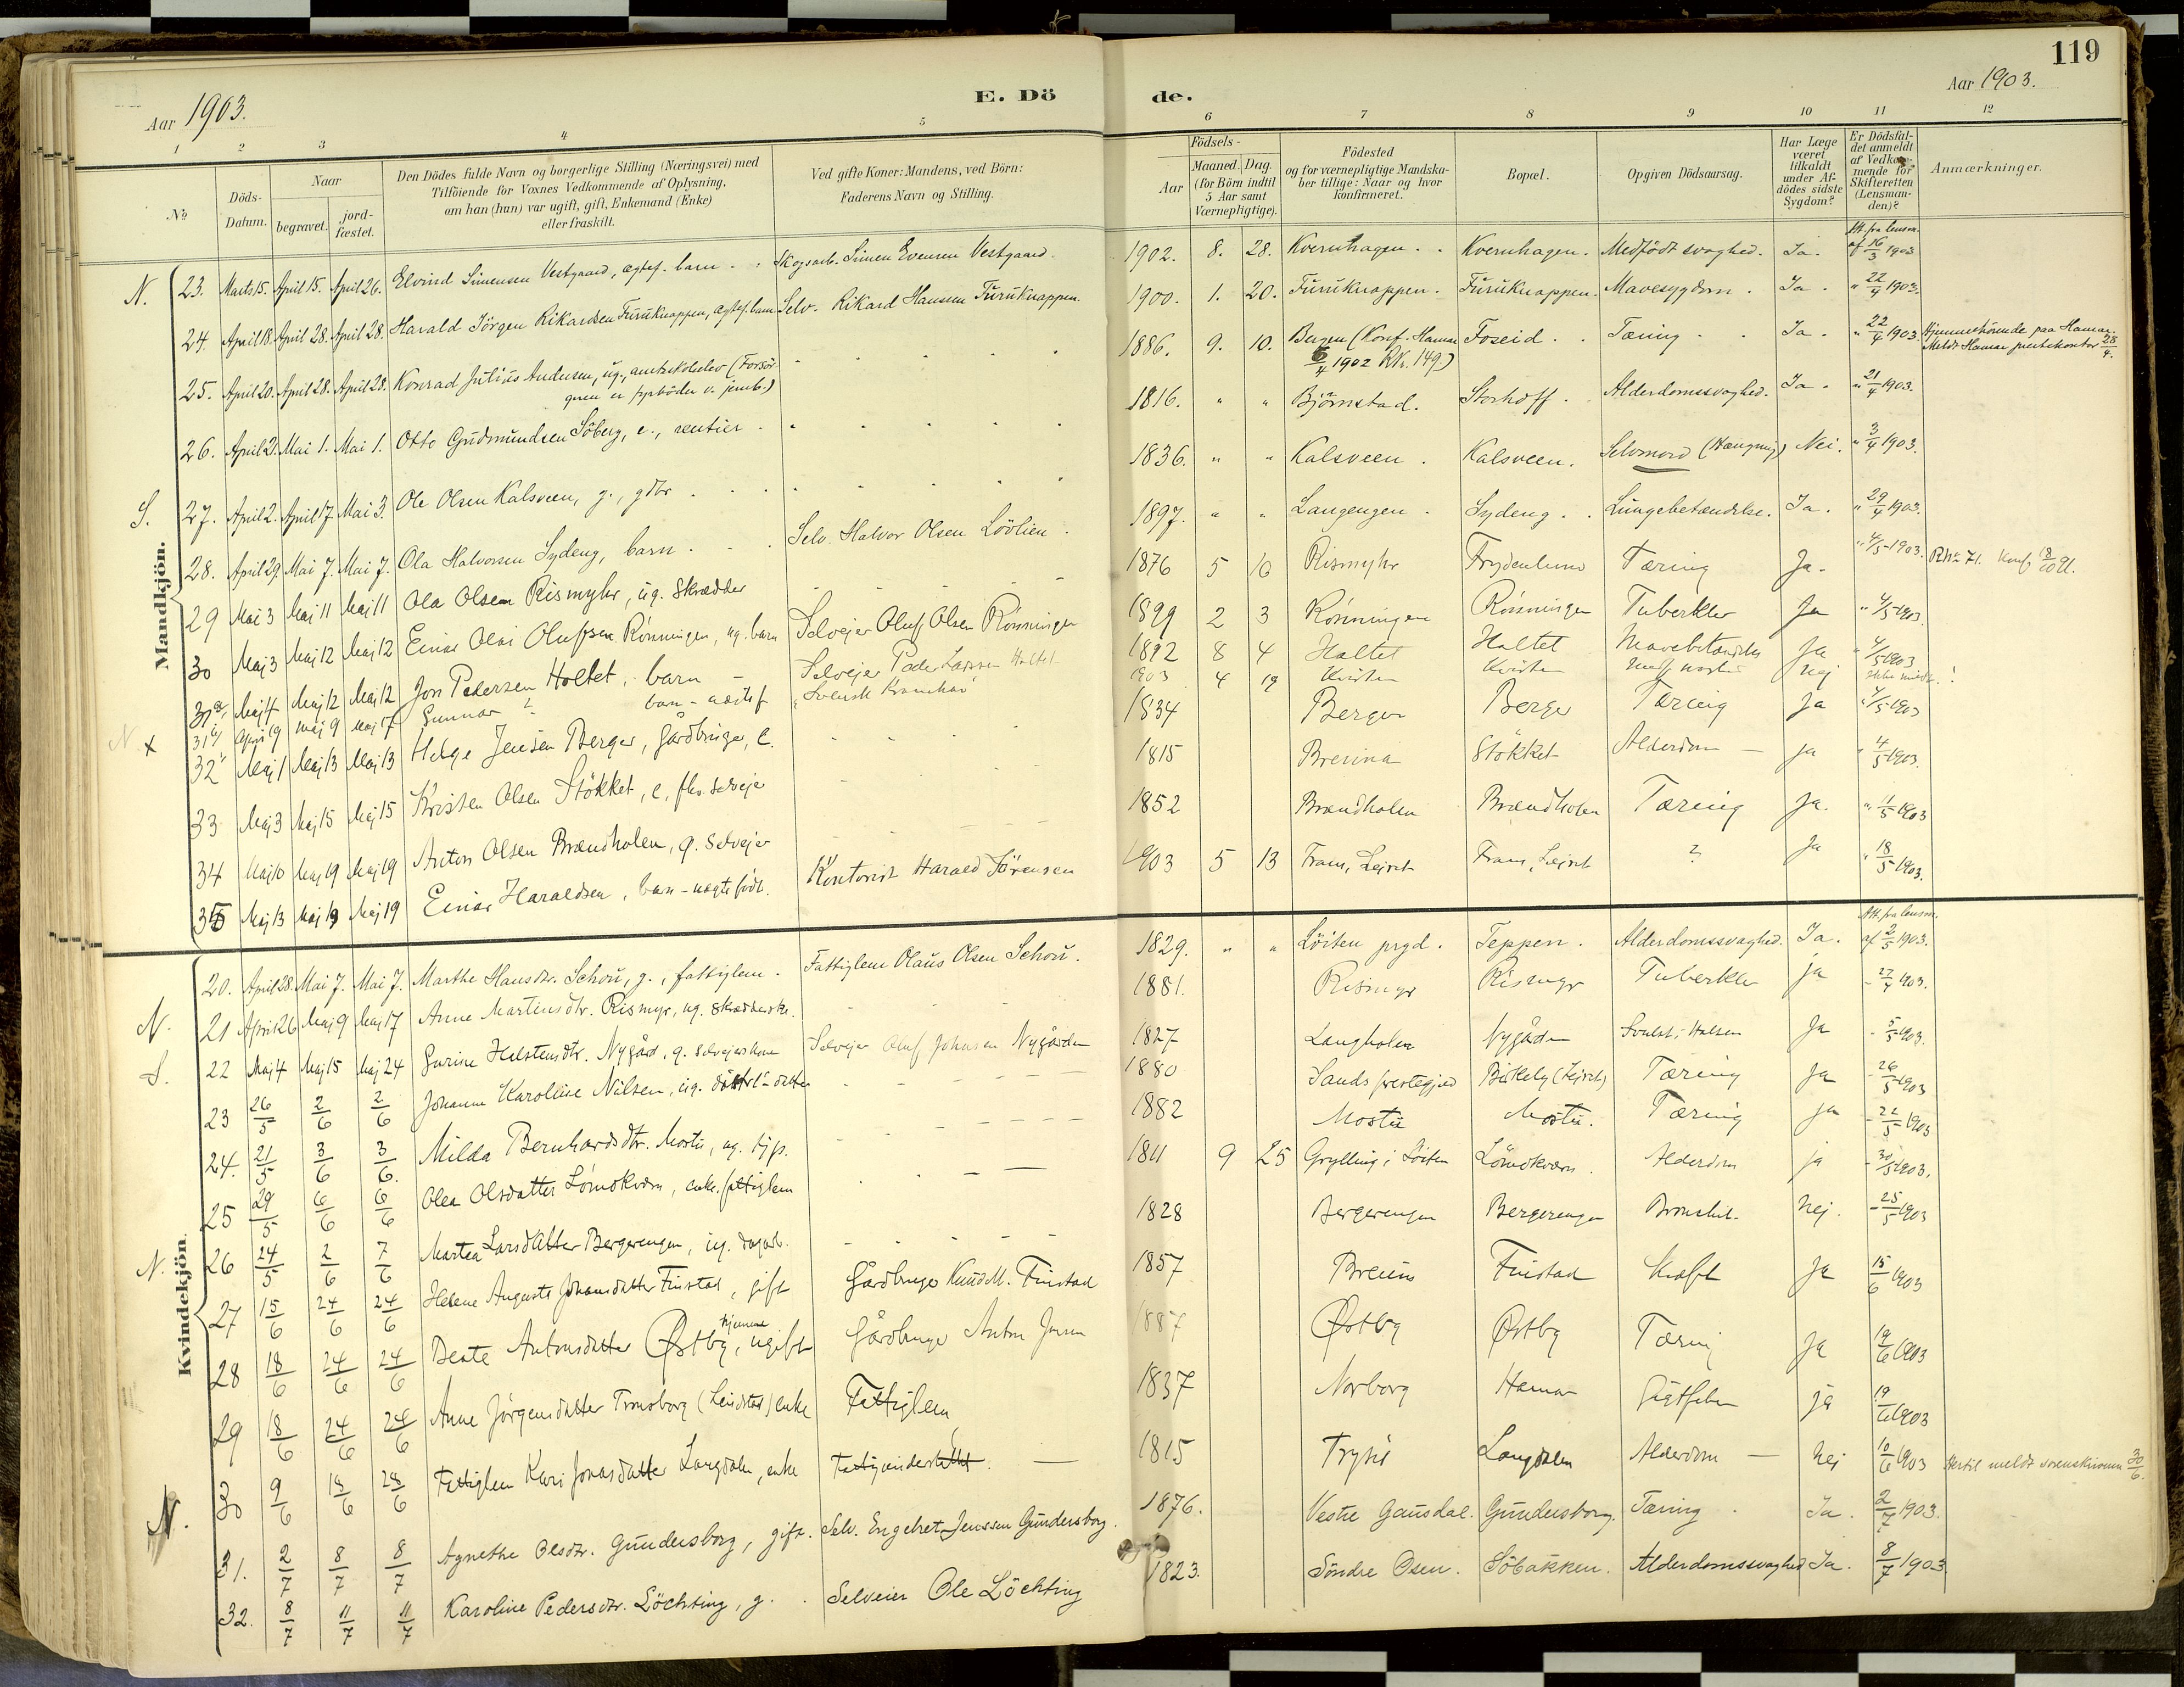 119
Aar 1903.
E. Dö de.
Aar 1903.
1 2 3 4 5 6 7 8 9 10 11 12
No
Döds-Datum.
Naar
begravet.
jord-fæstet.
Den Dödes fulde Navn og borgerlige Stilling (Næringsvei) med
Tilföiende for Voxnes Vedkommende af Oplysning,
om han (hun) var ugift, gift, Enkemand (Enke)
eller fraskilt.
Ved gifte Koner: Mandens, ved Börn:
Faderens Navn og Stilling.
Födsels-
Aar
Maaned. Dag.
(for Börn indtil
5 Aar samt
Værnepligtige).
Födested
og for værnepligtige Mandska-
ber tillige: Naar og hvor
konfirmeret.
Bopæl.
Opgiven Dödsaarsag.
Har Læge
været
tilkaldt
under Af-
dödes sidste
Sygdom?
Er Dödsfal-
det anmeldt
af Vedkom-
mende for
Skifteretten
(Lensman-
den)?
Anmærkninger.
Mandkjön.
N. 23. Marts 15. April 15. April 26. Eivind Simensen Vestgaard, ægtef. barn. Skogsarb. Simen Evensen Vestgaard. 1902. 8. 28. Kvernhagen. Kvernhagen. Medfödt svaghed. Ja. Att. fra lensm. af 16/3 1903
24. April 18. April 28. April 28. Harald Jörgen Rikardsen Furuknappen, ægtef. barn Selv. Rikard Hansen Furuknappen. 1900. 1. 20. Furuknappen. Furuknappen. Mavesygdom. Ja. " 22/4 1903.
25. April 20. April 28. April 28. Konrad Julius Andersen, ug., amtsskoleelev (Forsör-
geren er fyrböder v. jernb.) 1886. 9. 10. Bergen (Konf. Hamar Foseid. Tæring Ja. " 22/4 1903. Hjemmehörende paa Hamar.
/4 1902 RNr. 149) Meldt Hamar prestekontor 28/4.
26. April 2. Mai 1. Mai 1. Otto Gudmundsen Söberg, e., rentier. 1816. " " Björnstad. Storhoff. Alderdomssvaghed. Ja. " 21/4 1903.
S. 27. April 2. April 17. Mai 3. Ole Olsen Kalsveen, g., gdbr. 1836. " " Kalsveen. Kalsveen. Selvmord (Hængning) Nei. " 3/4 1903.
28. April 29. Mai 7. Mai 7. Ola Halvorsen Sydeng, barn. Selv. Halvor Olsen Lövlien. 1897. " " Langengen. Sydeng. Lungebetændelse. Ja. " 29/4 1903.
29 Mai 3 Maj 11 Maj 11 Ola Olsen Rismyhr, ug. Skrædder 1876 5 10 Rismyhr Frydenlund Tæring Ja. " 4/5 1903. RNr 71. Konf 18/10 91.
30 Maj 3 Maj 12 Maj 12 Einar Olai Olufsen Rönningen, ug. barn Selvejer Oluf Olsen Rönningen 1899 2 3 Rönningen Rönningen Tuberkler Ja " 4/5 1903.
31a) Maj 4 Maj 12 Maj 12 Jon Pedersen Holtet, barn Selvejer Peder Larssen Holtet 1892 8 4 Holtet Holtet Mavebetændelse Ja " 4/5 1903
N x 31b) April 19 Maj 9 Maj 17 Gunnar ? barn - uægtef Svensk 1903 4 19 Kvisten Kvisten Nej ikke meldt!
32 Maj 1 Maj 13 Maj 13 Helge Jensen Berger, Gårdbruger, e. 1834 Berger Berger Tæring Ja " 4/5 1903
33 Maj 3 Maj 15 Maj 15 Kristen Olsen Stökket, e, fhv. selvejer 1815 Stökket Alderdom ja " 4/5 1903.
34 Maj 10 Maj 19 Maj 19 Anton Olsen Brændholen, g. selvejer 1852 Brændholen Brændholen Tæring Ja. " 11/5 1903
35 Maj 13 Maj 19 Maj 19 Einar Haraldsen, barn - uægte födt. Kontorist Harald Sörensen 1903 5 13 Fram, Lejret Fram, Lejret ? Ja " 18/5 1903.
Kvindekjön.
20. April 28. Mai 7. Mai 7. Marthe Hansdtr. Schou, g., fattiglem. Fattiglem Olaus Olsen Schou. 1829. " " Löiten prgd. Teppen. Alderdomssvaghed. Ja. Att. fra lensm. af 2/5 1903.
N. 21 April 26 Maj 9 Maj 17 Anne Martinsdtr. Rismyr, ug. Skrædderske. 1881. Rismyr Rismyr Tuberkler ja - 27/4 1903.
S. 22 Maj 4 Maj 15 Maj 24 Gurine Helstensdtr. Nygård, g. selvejerkone Selvejer Oluf Johnsen Nygården 1827 Langholen Nygården Svulst i Halsen Ja - 5/5 1903.
23 26/5 2/6 2/6 Johanne Karoline Nilsen, ug. datter 1880 Sands prestegjeld Birkely (Lejret) Tæring Ja - 26/5 1903
24. 21/5 3/6 3/6. Milda Bernhardsdtr. Mostu, ug. tjp. 1882 Mostu Mostu. Tæring ja - 22/5 1903
25 29/5 6/6 6/6 Olea Olsdatter Lömokværn, enke. fattiglem 1811 9 25 Grylling i Löiten Lömokværn. Alderdom ja - 30/5 1903.
N. 26 24/5 2/6 7/6 Martea Larsdatter Bergerengen, ug. dagarb. 1828 Bergerengen Bergerengen Bronchit. Nej. - 25/5 1903
27 15/6 24/6 24/6 Helene Auguste Johansdatter Finstad, gift Gårdbruger Knud M. Finstad 1857 Finstad Kræft Ja 15/6 1903
28 18/6 24/6 24/6 Beate Antonsdatter Østby, hjemme ugift Gårdbruger Anton Jensen 1887 Østby Østby Tæring Ja 19/6 1903
29 18/6 24/6 24/6 Anne Jörgensdatter Tronsborg (Lindstad) enke Fattiglem 1837 Norborg Hamar Gigtfeber ja 19/6 1903
N. 30 9/6 18/6 28/6 Fattiglem Kari Jonasdatter Langdalen, enke Fattigunderstöttet. 1815 Trysil Langdalen Alderdom Nej 10/6 1903 Hertil meldt sorenskriveren 30/6.
31. 2/7 8/7 8/7 Agnethe Olsdtr. Gundersborg, gift. Selv. Engebret Jenssen Gundersborg. 1876. Vestre Gausdal. Gundersborg. Tæring Ja. 2/7 1903.
32. 8/7 11/7 11/7 Karoline Pedersdtr. Löchting, g. Selveier Ole Löchting 1823. Söndre Osen. Söbakken. Alderdomssvaghed Ja. 8/7 1903